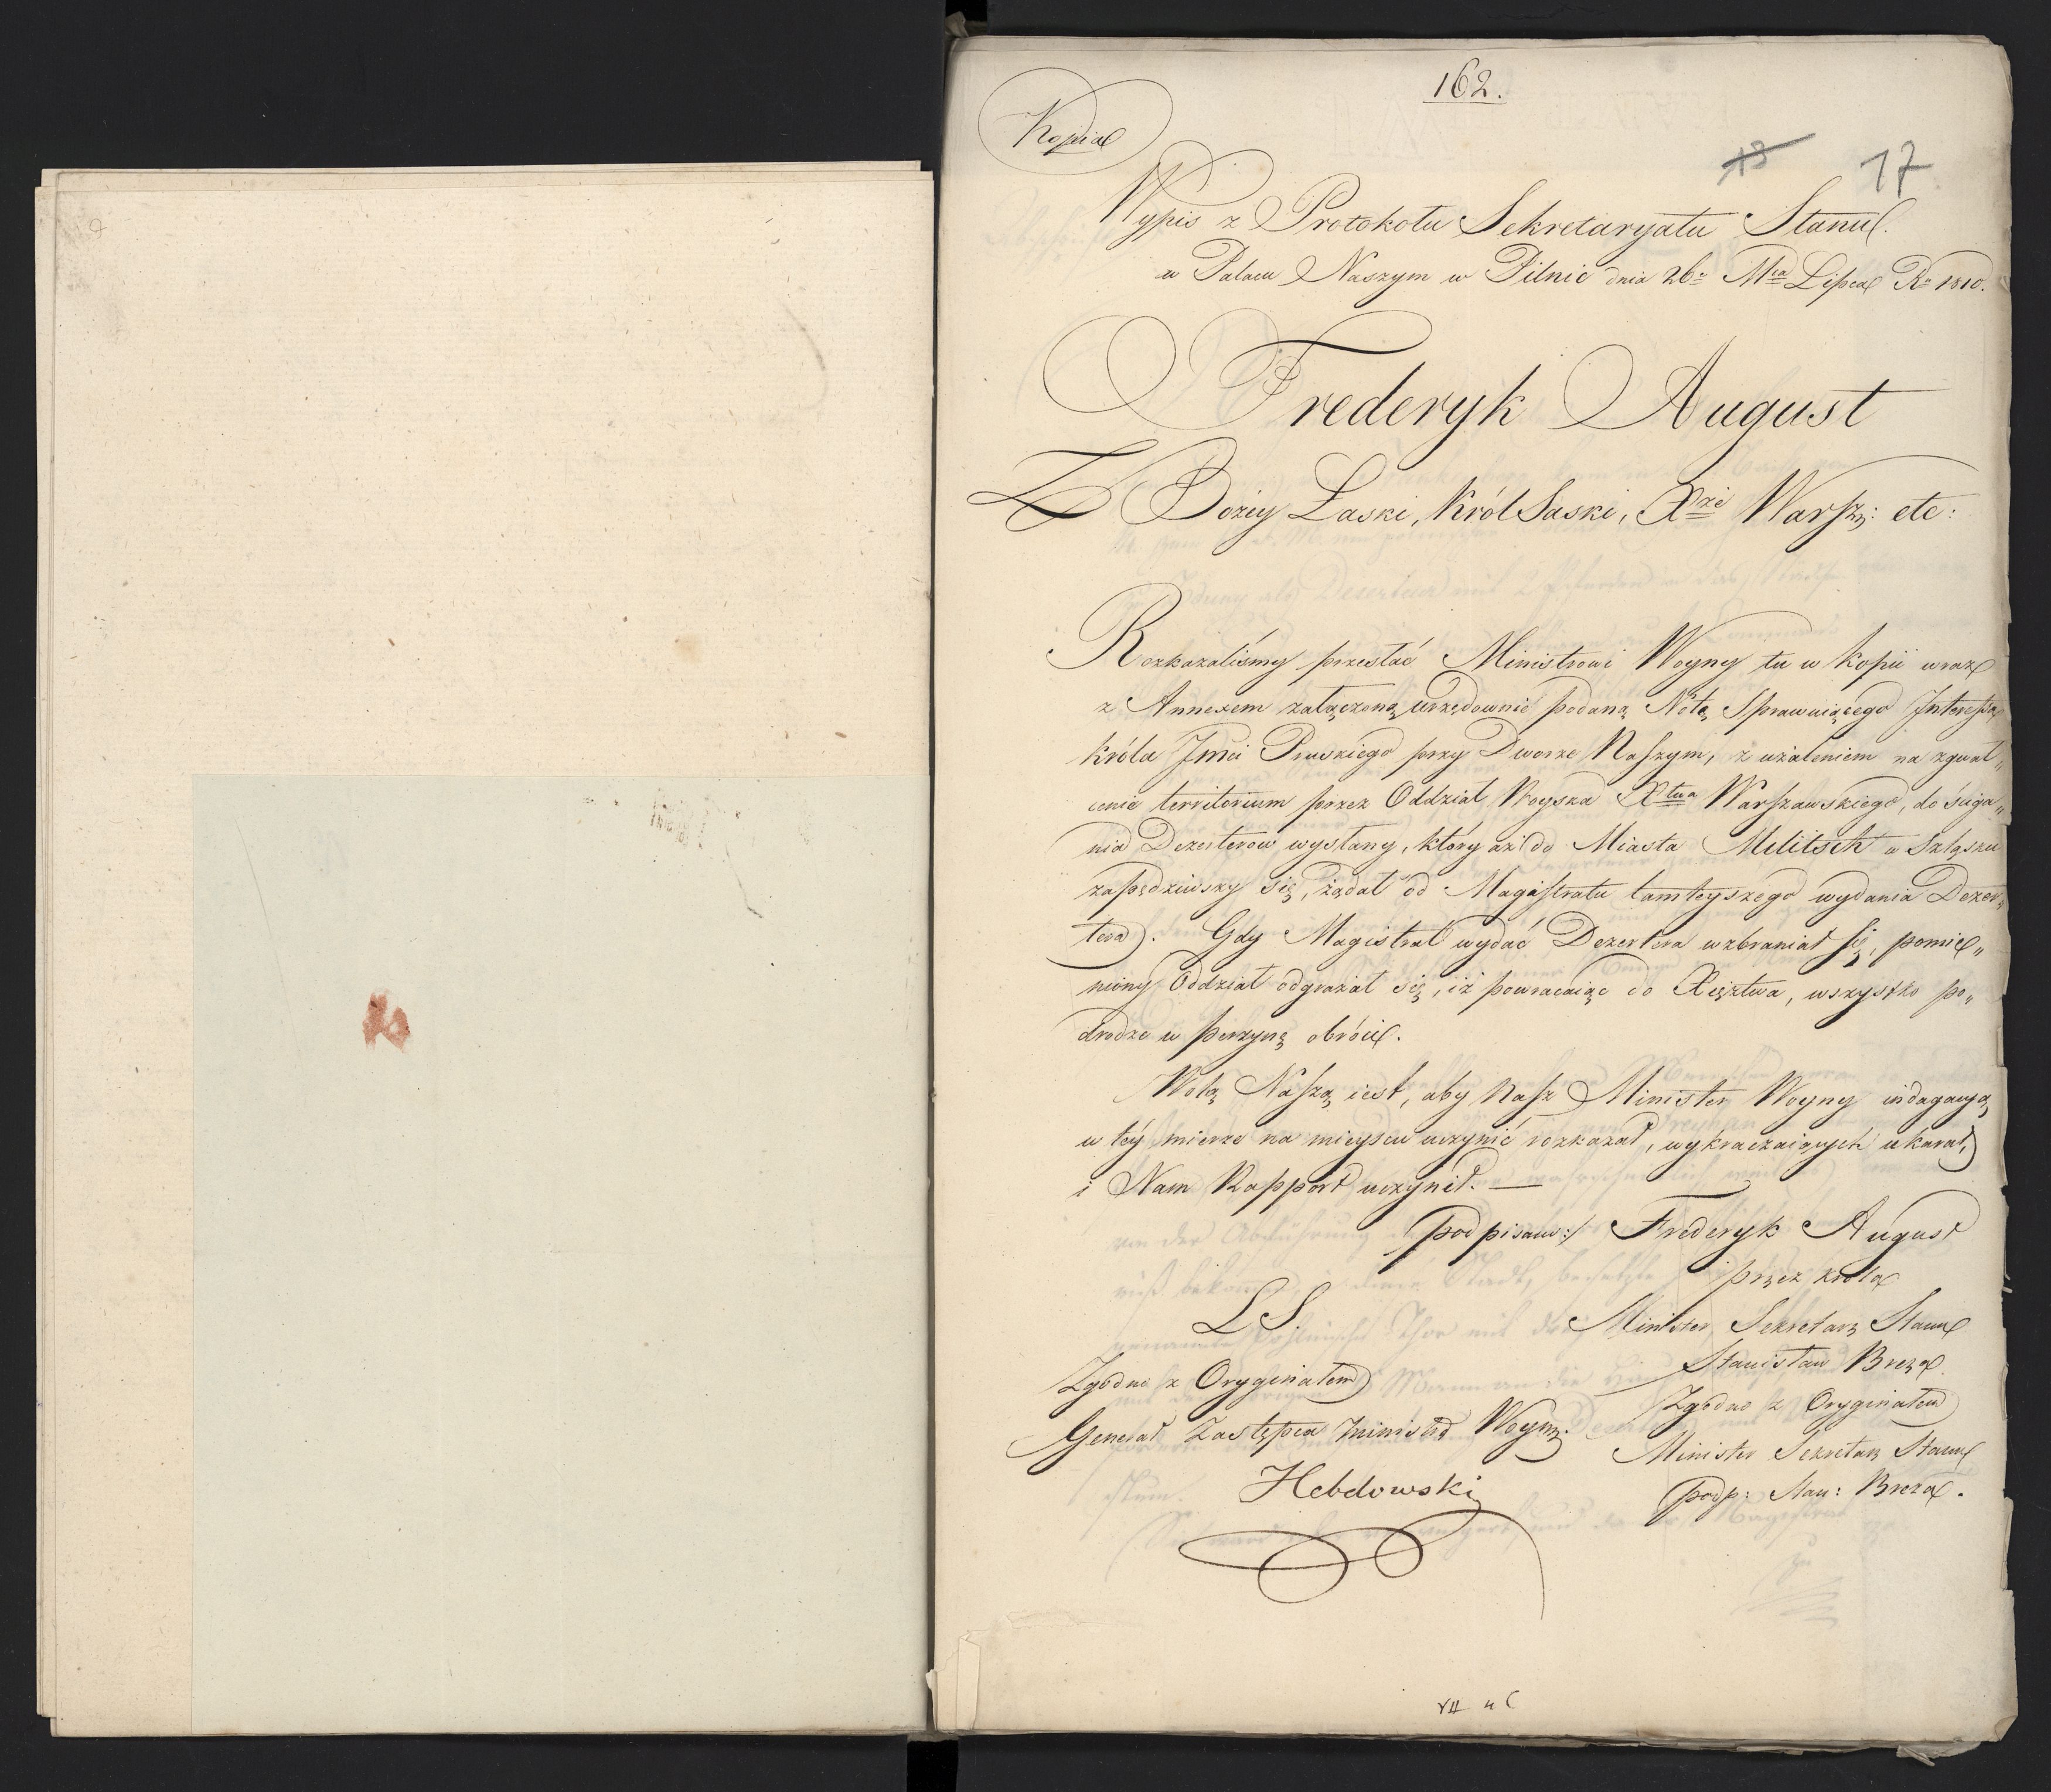 162.
Kopia
13 17
Wypis z Protokołu Sekretaryatu Stanu.
w Pałacu Naszym w Pilnic dnia 26o Mca Lipca Ro 1810.
Frederyk August
Z Bożey Łaski, Król Saski, Xże Warszi: etc:
Rozkazaliśmy przesłać Ministrowi Woyny tu w kopii wraz
z Annexem załączoną urzędownie podaną Notę Sprawuiącego Interessa
króla Jmci Pruskiego przy Dworze Naszym, z użaleniem na zgwał„
cenie territorium przez Oddział Woyska Xtwa Warszawskiego, do ściga„
nia Dezerterow wysłany, który aż do Miasta Militsch w Szląsku
zapędziwszy się, żądał od Magistratu tamteyszego wydania Dezer„
tera. Gdy Magistrat wydać Dezertera wzbraniał się, pomie„
niony Oddział odgrażał się, iż powracaiąc do Xięztwa, wszystko po„
drodze w perzynę obróci.
Wolą Naszą iest, aby Nasz Minister Woyny indagacyą
w téy mierze na mieyscu uczynić rozkazał, wykraczaiących ukarał,
i Nam Rapport uczynił. —
podpisano:/ Frederyk August
przez króla
L S. Minister Sekretarz Stanu
Stanisław Breza.
Zgodno z Oryginałem
Zgodno z Oryginałem
Generał Zastępca Ministra Woyny.
Minister Sekretarz Stanu
Hebdowski
podp: Stan: Breza.